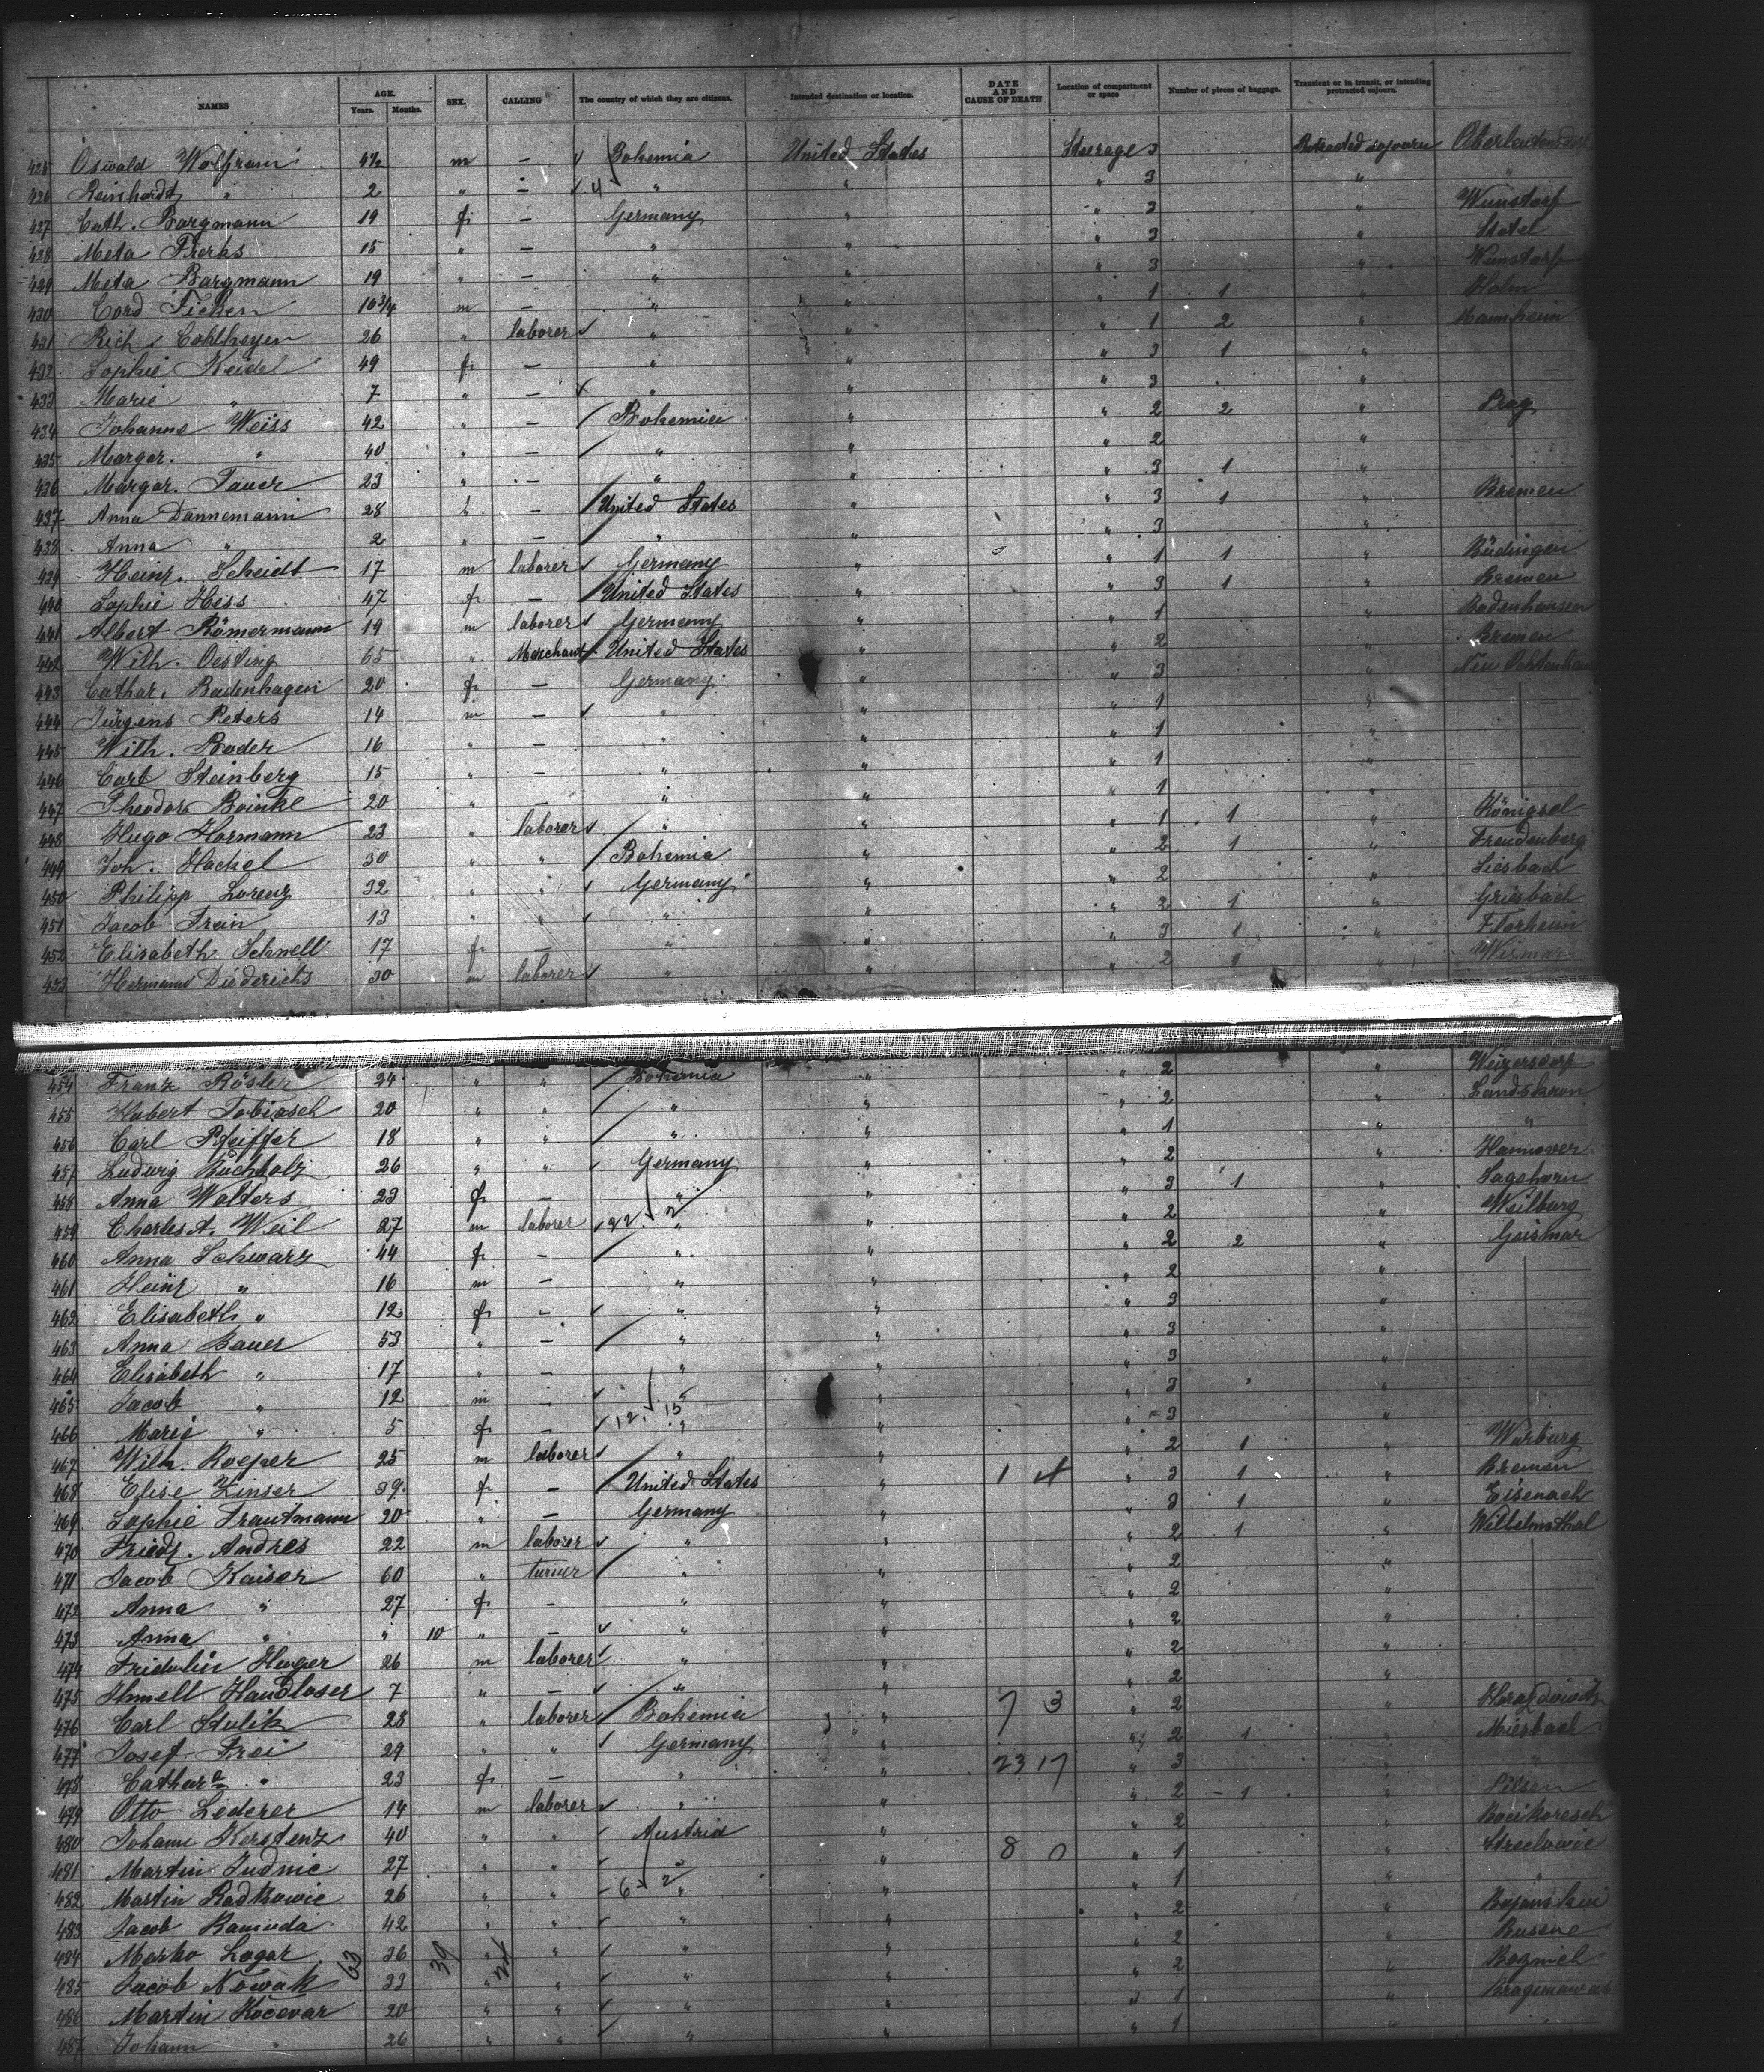 NAMES AGE. Years. Months. SEX. CALLING The country of which they are citizens. Intended destination or location. DATE AND CAUSE OF DEATH Location of compartment or space Number of pieces of baggage. Transient or in transit, or intending protracted sojourn.
425 Oswald Wolfram 4½ m — Bohemia United States Steerage 3 Protracted sojourn
426 Reinhardt " 2 " — 4 " " " 3 " "
427 Cath. Bargmann 19 f — Germany " " 3 " Wunstorf
428 Meta Frerks 15 " — " " " 3 " Stotel
429 Meta Bargmann 19 " — " " " 3 " Wunstorf
430 Cord Ficken 10¾ m " " " 1 1 " Holm
431 Rich. Cohlheyer 26 " laborer " " " 1 2 " Mannheim
432 Sophie Keidel 49 f — " " " 3 1 "
433 Marie " 7 " — " " " 3 "
434 Johanne Weiss 42 " — Bohemia " " 2 2 " Prag
435 Margar. " 40 " — " " " 2 "
436 Margar. Tauer 23 " — " " " 3 1 "
437 Anna Dannemann 28 " — United States " " 3 1 " Bremen
438 Anna " 2 " — " " " 3 "
439 Heinr. Scheidt 17 m laborer Germany " " 1 1 " Büdingen
440 Sophie Hess 47 f — United States " " 3 1 " Bremen
441 Albert Römermann 19 m laborer Germany " " 1 " Badenhausen
442 Wilh. Oesting 65 " Merchant United States " " 2 " Bremen
443 Cathar. Badenhagen 20 f — Germany " " 3 "
444 Jürgens Peters 14 m — " " " 1 "
445 Wilh. Bader 16 " — " " " 1 "
446 Carl Steinberg 15 " — " " " 1 "
447 Theodor Boinke 20 " — " " " 1 "
448 Hugo Hormann 23 " laborer " " " 1 1 "
449 Joh. Hackel 30 " " Bohemia " " 2 1 " Freudenberg
450 Philipp Lorenz 32 " " Germany " " 2 "
451 Jacob Frein 13 " " " " " 2 1 " Griesbach
452 Elisabeth Schnell 17 f — " " " 3 1 "
453 Hermann Diederichs 30 m laborer " " " 2 1 " Wismar
454 Franz Rösler 24 " " Bohemia " " 2 " Weigersdorf
455 Hubert Tobiasch 20 " " " " " 2 " Landskron
456 Carl Pfeiffer 18 " " " " " 1 " "
457 Ludwig Buchholz 26 " " Germany " " 2 " Hannover
458 Anna Wolters 23 f — " " " 3 1 " Sagehorn
459 Charles A. Weil 27 m laborer 22 2 " " " 2 " Weilburg
460 Anna Schwarz 44 f — " " " 2 2 " Geismar
461 Heinr " 16 m — " " " 2 "
462 Elisabeth " 12 f — " " " 3 "
463 Anna Bauer 53 " — " " " 3 "
464 Elisabeth " 17 " — " " " 3 "
465 Jacob " 12 m — " " " 3
466 Marie " 5 f — 12 15 " " " 3
467 Wilh. Roeper 25 m laborer " " " 2 1 " Warburg
468 Elise Kinser 39 f — United States " 1 4 " 3 1 " Bremen
469 Sophie Trautmann 20 " — Germany " " 3 1 " Eisenach
470 Friedr. Andres 22 m laborer " " " 2 1 " Wilhelmsthal
471 Jacob Kaiser 60 " turner " " " 2 "
472 Anna " 27 f — " " " 2 "
473 Anna " " 10 " — " " " 2 "
474 Fridolin Huger 26 m laborer " " " 2 "
475 Handloser 7 " — " " " 2 "
476 Carl Stulik 28 " laborer Bohemia " 7 3 " 2 "
477 Josef Frei 29 " " Germany " " 2 1 " Miesbach
478 Cathara " 23 f — " " 23 17 " 3 " "
479 Otto Lederer 14 m laborer " " " 2 1 " Pilsen
480 Johann Kerstenz 40 " " Austria " " 2 "
481 Martin Judnic 27 " " " " 8 0 " 1 "
482 Martin Radkowic 26 " " 6 2 " " " 1 " "
483 Jacob Ramuda 42 " " " " " 2 "
484 Marko Logar 36 " " " " " 2 "
485 Jacob Nowak 33 " " " " " 2 "
486 Martin Kocevar 20 " " " " " 1 "
487 Johann 26 " " " " " 1 "
63 39 24